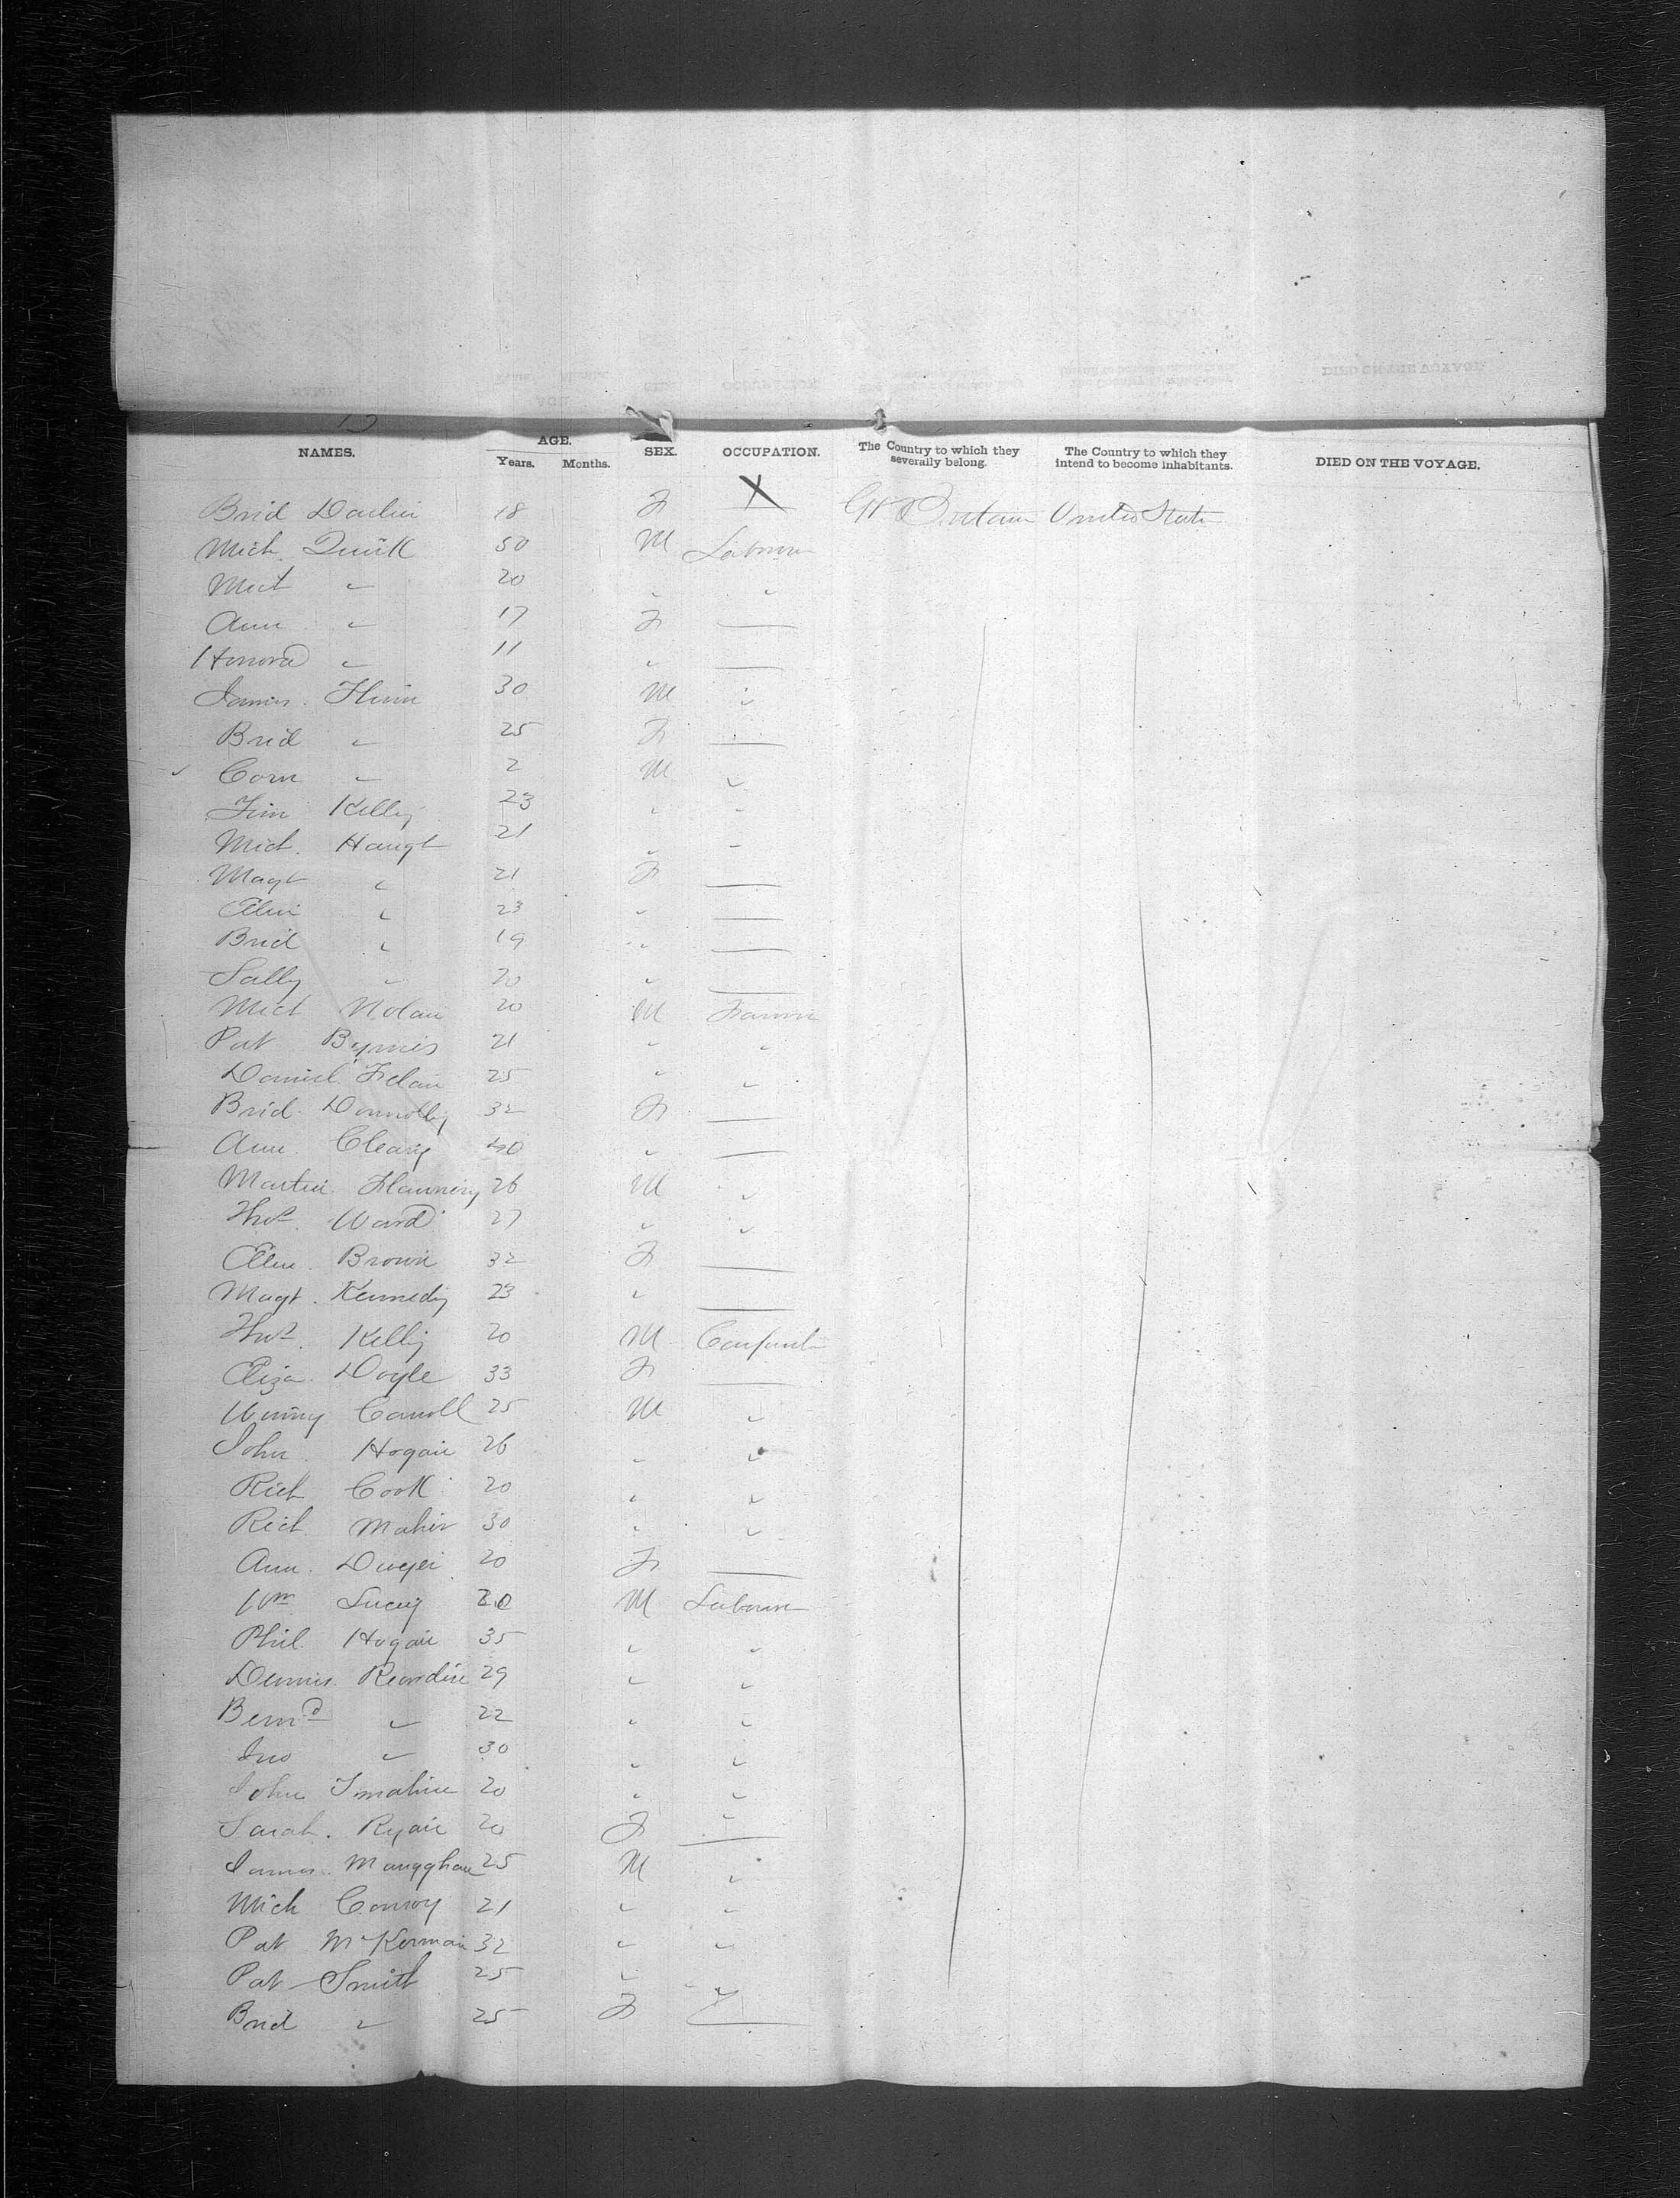 NAMES. AGE. Years. Months. SEX. OCCUPATION. The Country to which they severally belong. The Country to which they intend to become inhabitants. DIED ON THE VOYAGE.
Brid 18 F X Gt Britain United States
Mich. Quirk 50 M Labourer
Mict " 20 " "
Ann " 17 F —
Honora " 11 " —
James. Flinn 30 M "
Brid " 25 F —
Corn " 2 M "
Tim Kelly 23 " "
Mich. Haugt 21 " "
Magt " 21 F —
Ellen " 23 " —
Brid " 19 " —
Sally " 20 " —
Mict Nolan 20 M Farmer
Pat Byrnes 21 " "
Daniel 25 " "
Brid. Donnolly 32 F —
Ann. Cleary 40 " —
Martin. Flannery 26 M "
Thos. Ward 27 " "
Ellen. Brown 32 F —
Magt. Kennedy 23 " —
Thos. Kelly 20 M Carpenter
Eliza. Doyle 33 F —
Winny Carroll 25 M "
John Hogan 26 " "
Rich Cook 20 " "
Rich. Maher 30 " "
Ann. Dwyer 20 F —
Wm Lucey 20 M Labourer
Phil. Hogan 35 " "
Dennis. 29 " "
Bernd " 22 " "
Jno " 30 " "
John 20 " "
Sarah. Ryan 20 F —
James. 25 M "
Mich Conroy 21 " "
Pat McKernan 32 " "
Pat Smith 25 "
Brid " 25 F —